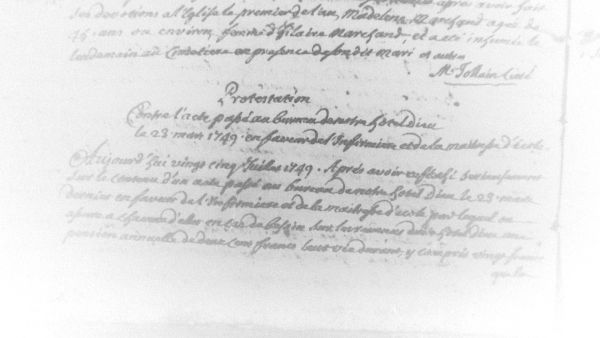 ses devotions a l'Eglise le premier de l'an, Madelene Marchand agée de
46. ans ou environ, femme d'hilaire Marchand, et a eté inhumée le
lendemain au Cimetiere en presence de son dit mari et autres
M. Jollain Curé
Protestation
Contre l'acte passé au bureau de notre hôtel Dieu
le 23 mars 1749. en faveur de l'Infirmiere et de la maitresse d'école.
Aujourd'hui vingt cinq Juillet 1749. Aprés avoir reflechi
sur le contenu d'un acte passé au bureau de notre hôtel Dieu le 23. mars
dernier en faveur de l'Infirmiere et de la maitresse d'école par lequel on
assure a chacune d'elles en cas de besoin sur les revenus dudit hôtel Dieu une
pension annuelle de deux cens francs leur vie durant, y compris vingt francs
que la